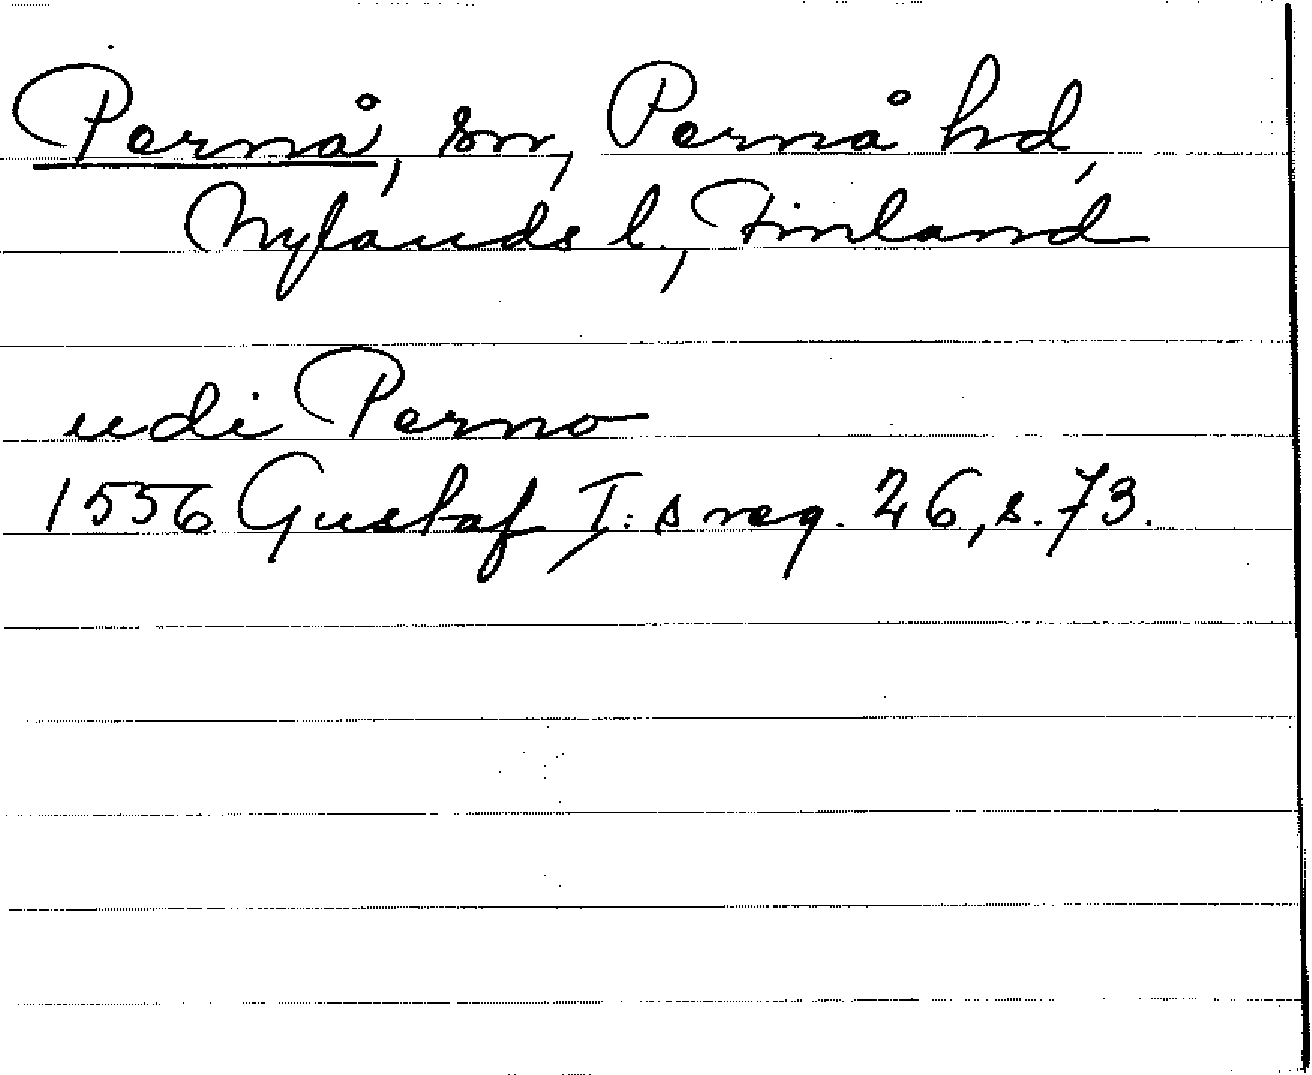 Pernå, sn, Pernå hd,
Nylands l., Finland
udi Perno
1556 Gustaf I:s reg. 26, s. 73.